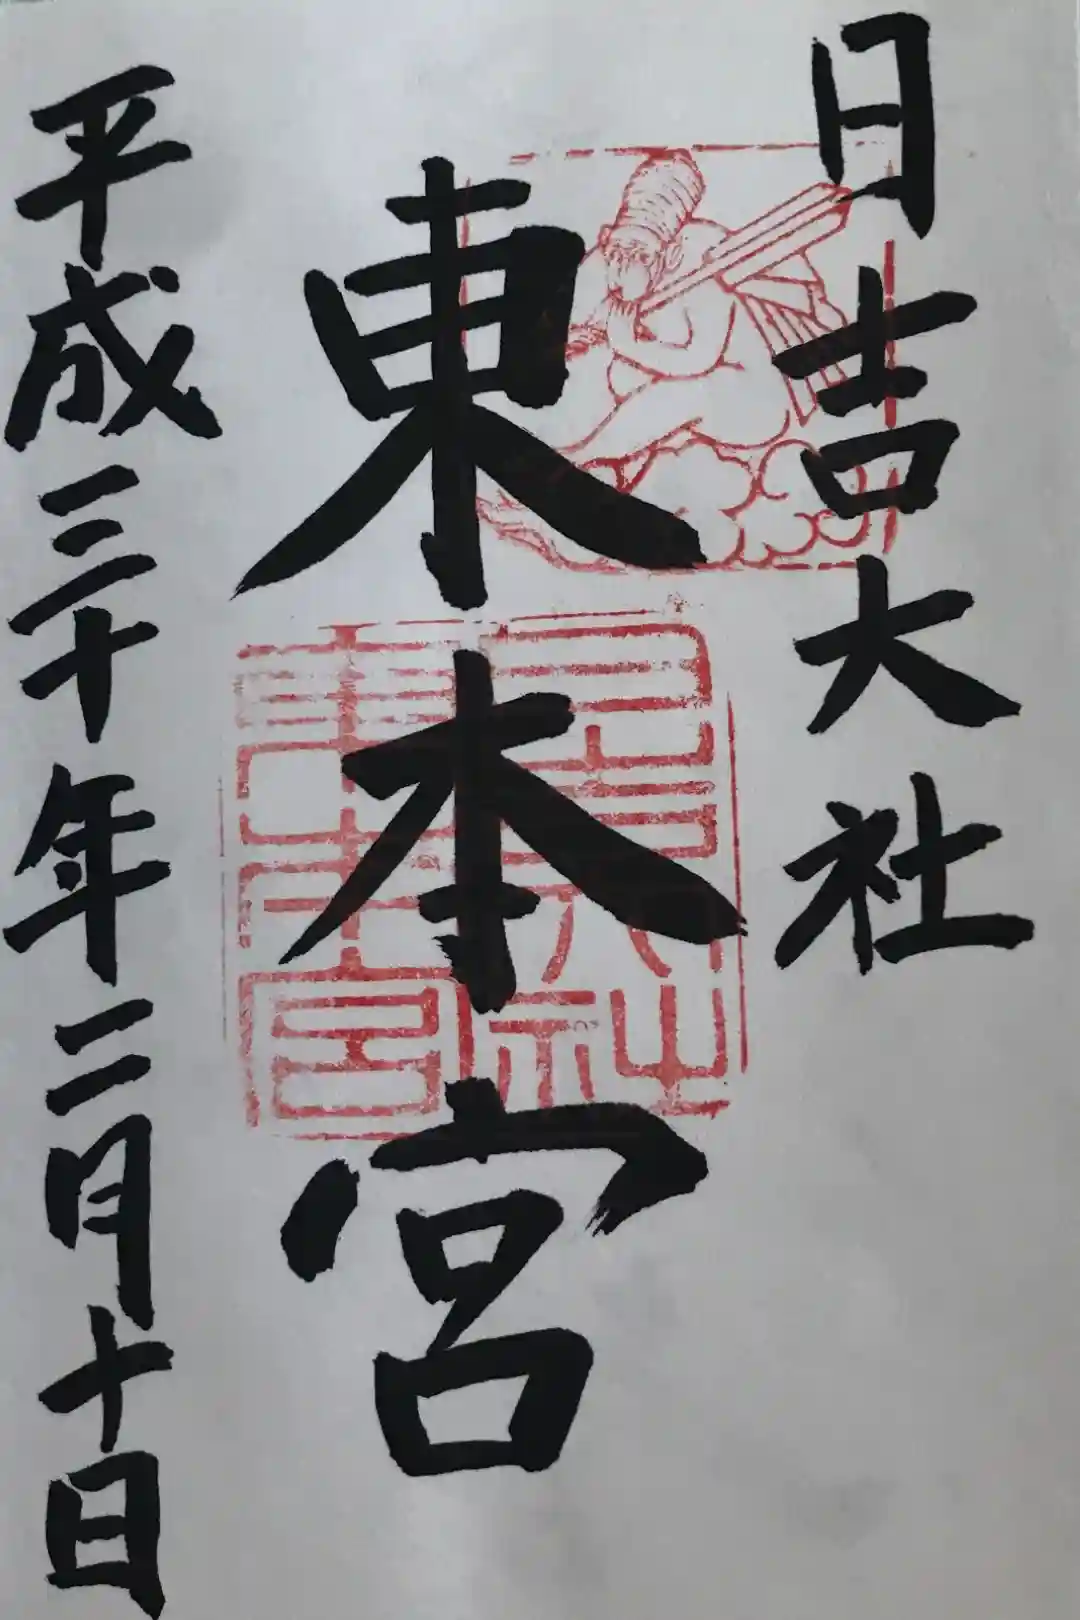 日吉大社
東本宮
平成三十年二月十日
日吉大社
東本宮